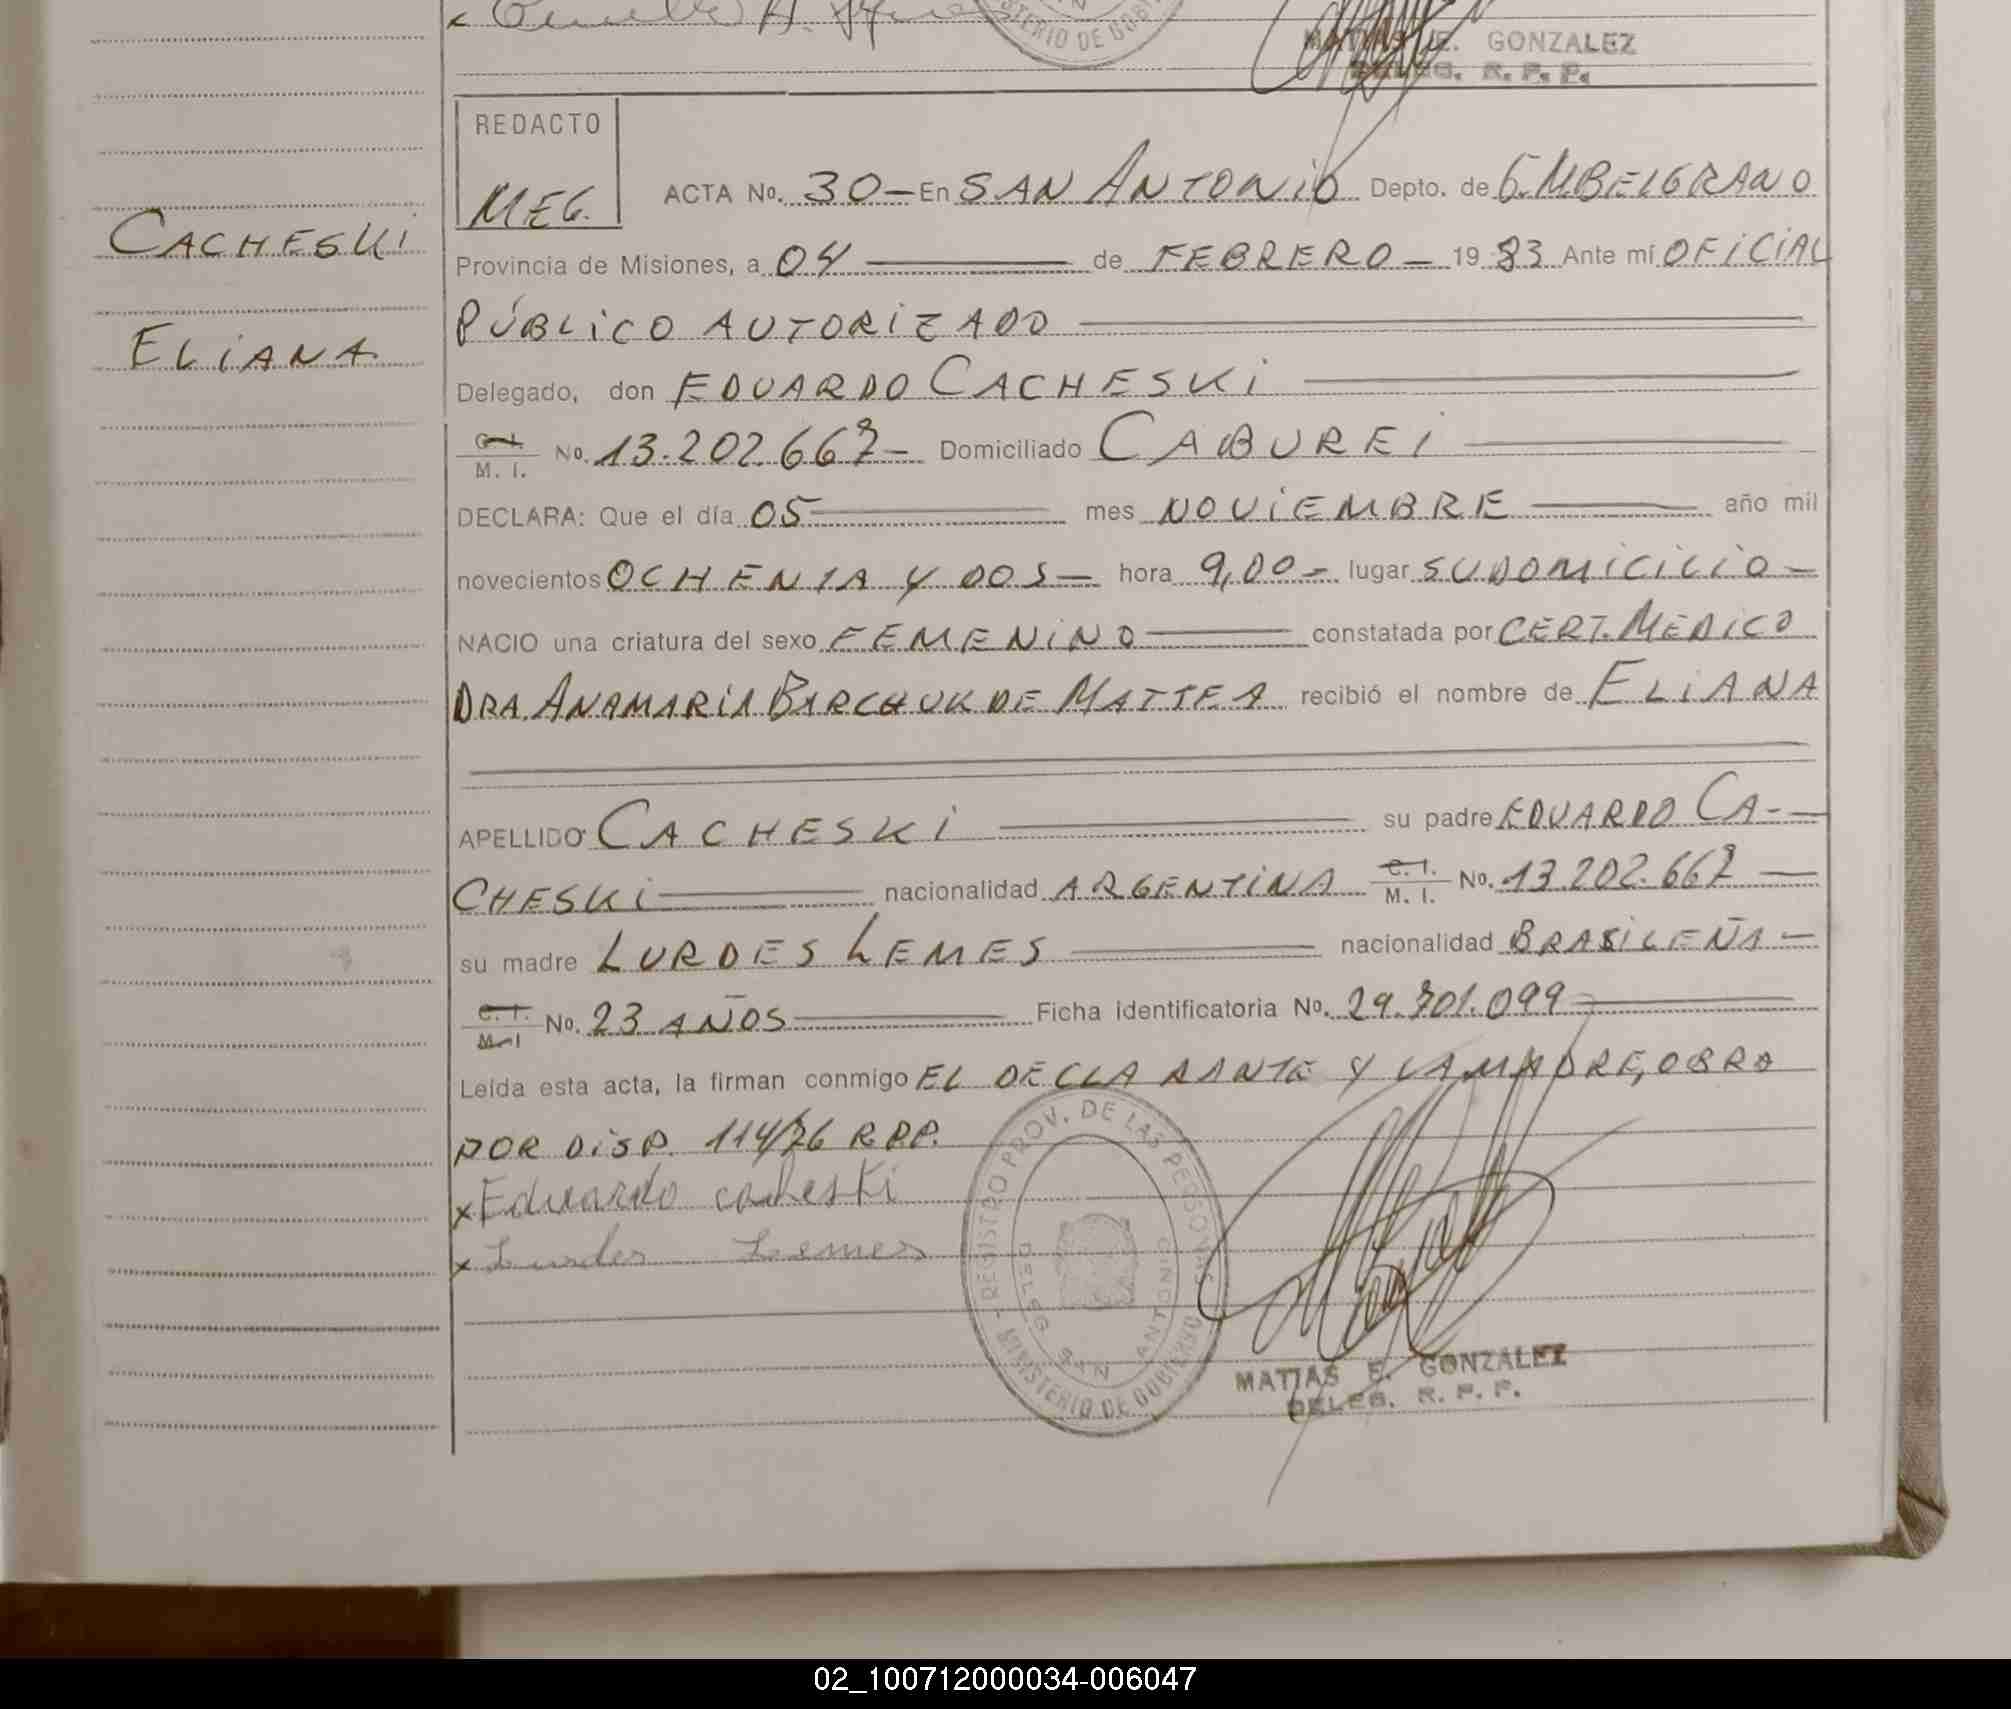 MINISTERIO DE GOBIERNO
MATIAS E. GONZALEZ
DELEG. R. P. P.
REDACTO
MEG.
CACHESKI
ELIANA
ACTA No. 30 – En SAN ANTONIO Depto. de G. M BELGRANO
Provincia de Misiones, a 04 de FEBRERO – 19 83 Ante mí OFICIAL
PÚBLICO AUTORIZADO
Delegado, don EDUARDO CACHESKI
C. I. / M. I. No. 13.202.667 – Domiciliado CABUREI
DECLARA: Que el día 05 mes NOVIEMBRE año mil
novecientos OCHENTA Y DOS – hora 9,00 – lugar SU DOMICICIO –
NACIO una criatura del sexo FEMENINO constatada por CERT. MEDICO
DRA. ANAMARIA BARCHUK DE MATTEA recibió el nombre de ELIANA
APELLIDO CACHESKI su padre EDUARDO CA-
CHESKI nacionalidad ARGENTINA C. I. / M. I. No. 13.202.667 –
su madre LURDES LEMES nacionalidad BRASILEÑA –
C. I. / M. I. No. 23 AÑOS Ficha identificatoria No. 29.701.099
Leída esta acta, la firman conmigo EL DECLARANTE Y LA MADRE, OBRO
POR DISP. 114/76 R.P.P.
x Eduardo cacheski
x Lurdes Lemes
REGISTRO PROV. DE LAS PERSONAS
DELEG SAN ANTONIO
MINISTERIO DE GOBIERNO
MATIAS E. GONZALEZ
DELEG. R. P. P.
02_100712000034-006047